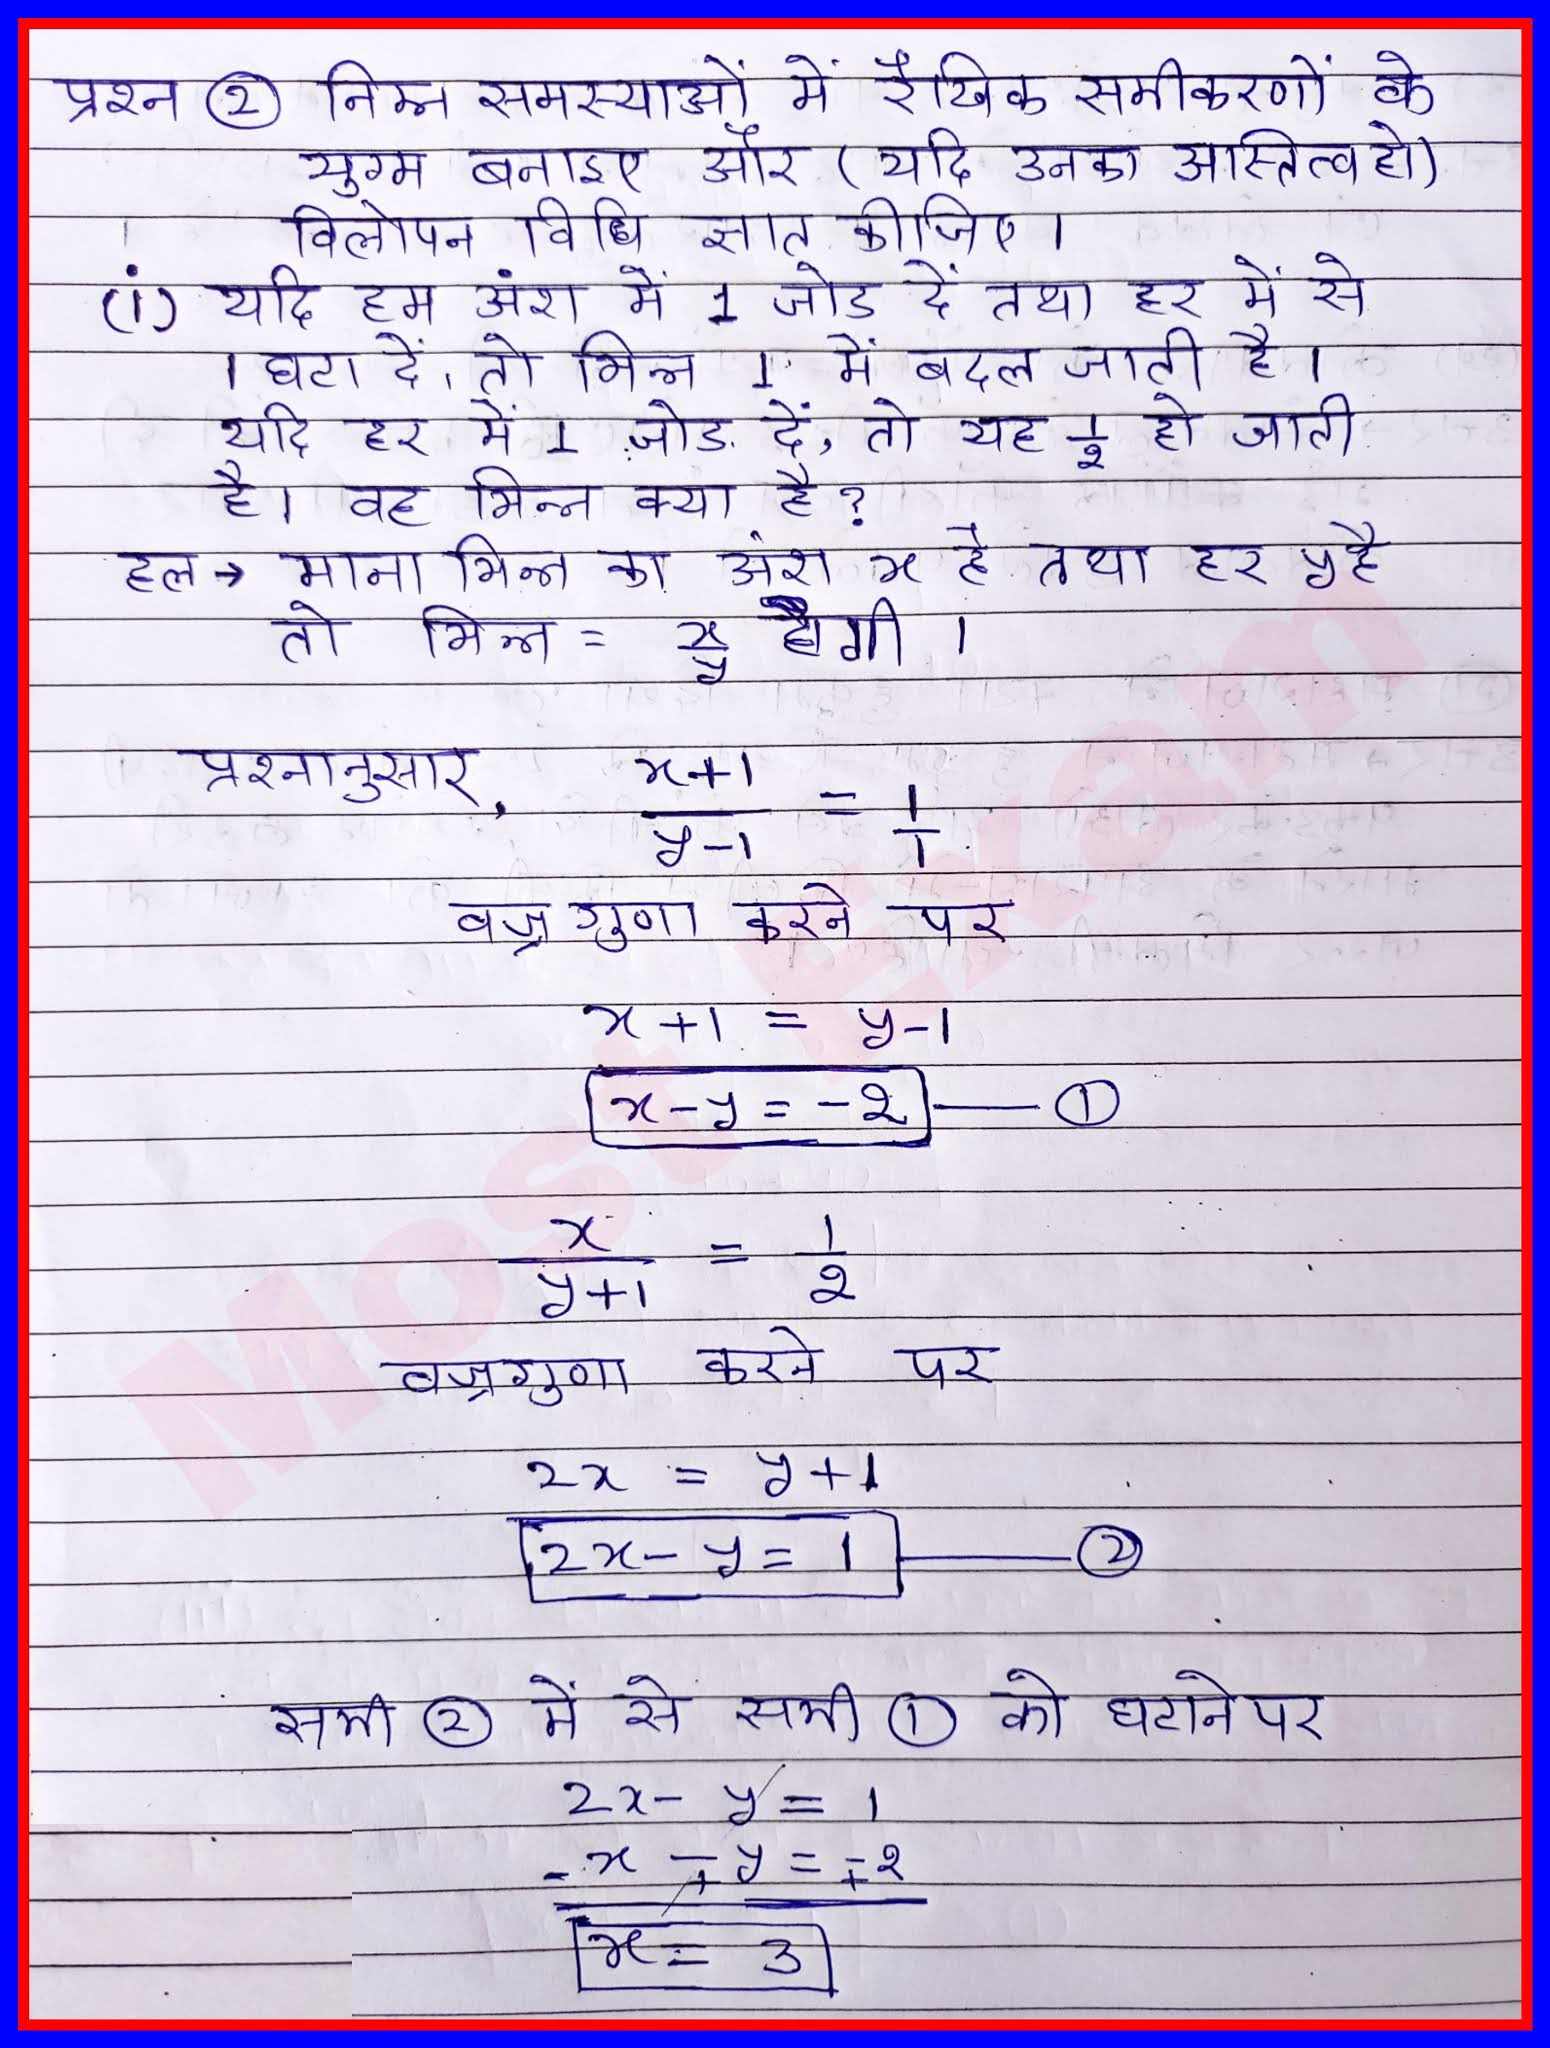 प्रश्न ② निम्न समस्याओं में रैखिक समीकरणों के
युग्म बनाइए और (यदि उनका अस्तित्व हो)
विलोपन विधि ज्ञात कीजिए।
(i) यदि हम अंश में 1 जोड दें तथा हर में से
1 घटा दें, तो भिन्न 1 में बदल जाती है।
यदि हर में 1 जोड दें, तो यह 1/2 हो जाती
है। वह भिन्न क्या है?
हल → माना भिन्न का अंश x है तथा हर y है
तो भिन्न = x/y होगी ।
प्रश्नानुसार, (x+1)/(y-1) = 1/1
वज्रगुणा करने पर
x+1 = y-1
x-y = -2 —— ①
x/(y+1) = 1/2
वज्रगुणा करने पर
2x = y+1
2x- y = 1 —— ②
समी ② में से समी ① को घटाने पर
2x- y = 1
x - y = -2
- + +
x = 3
Most Exam